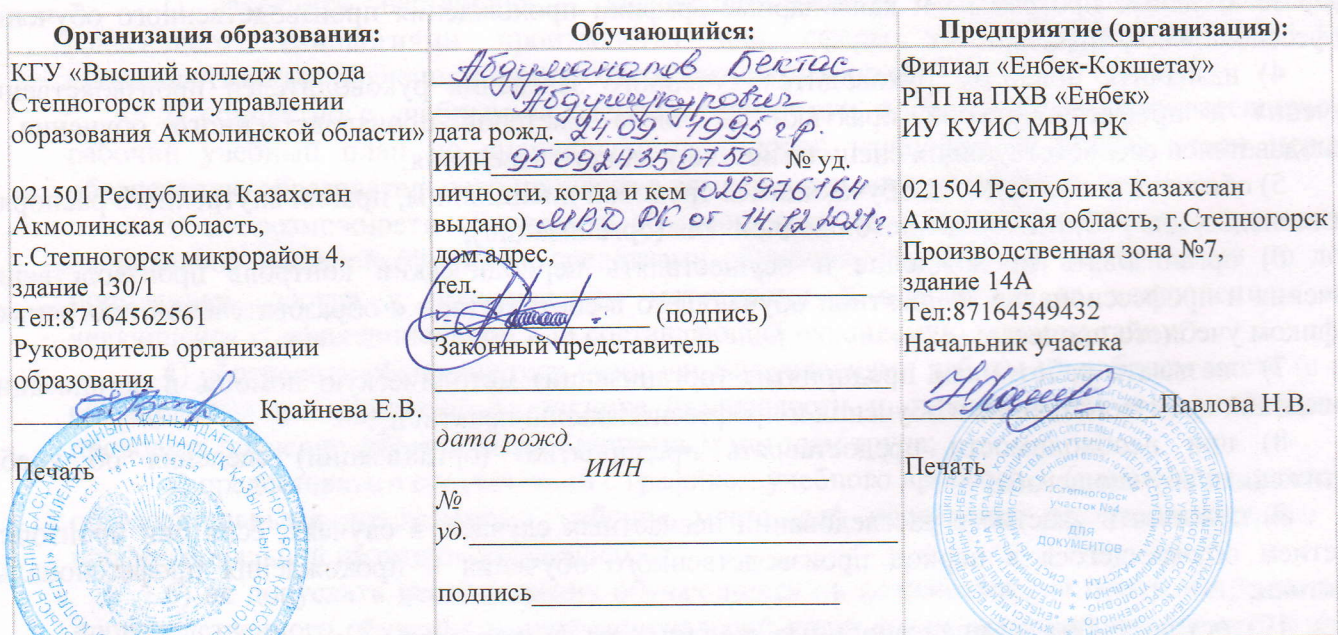 Организация образования:
КГУ «Высший колледж города
Степногорск при управлении
образования Акмолинской области»
021501 Республика Казахстан
Акмолинская область,
г.Степногорск микрорайон 4,
здание 130/1
Тел:87164562561
Руководитель организации
образования
Крайнева Е.В.
Печать
Обучающийся:
Абдуманапов Бектас
Абдушукурович
дата рожд. 24.09. 1995 г.р.
ИИН 950924350750 № уд.
личности, (когда и кем 026976164
выдано) МВД РК от 14.12.2021г.
дом.адрес,
тел.
(подпись)
Законный представитель
дата рожд.
ИИН
№
уд.
подпись
Предприятие (организация):
Филиал «Енбек-Кокшетау»
РГП на ПХВ «Енбек»
ИУ КУИС МВД РК
021504 Республика Казахстан
Акмолинская область, г.Степногорск
Производственная зона №7
здание 14А
Тел:87164549432
Начальник участка
Павлова Н.В.
Печать
Степногорск
участок №4
ДЛЯ
ДОКУМЕНТОВ